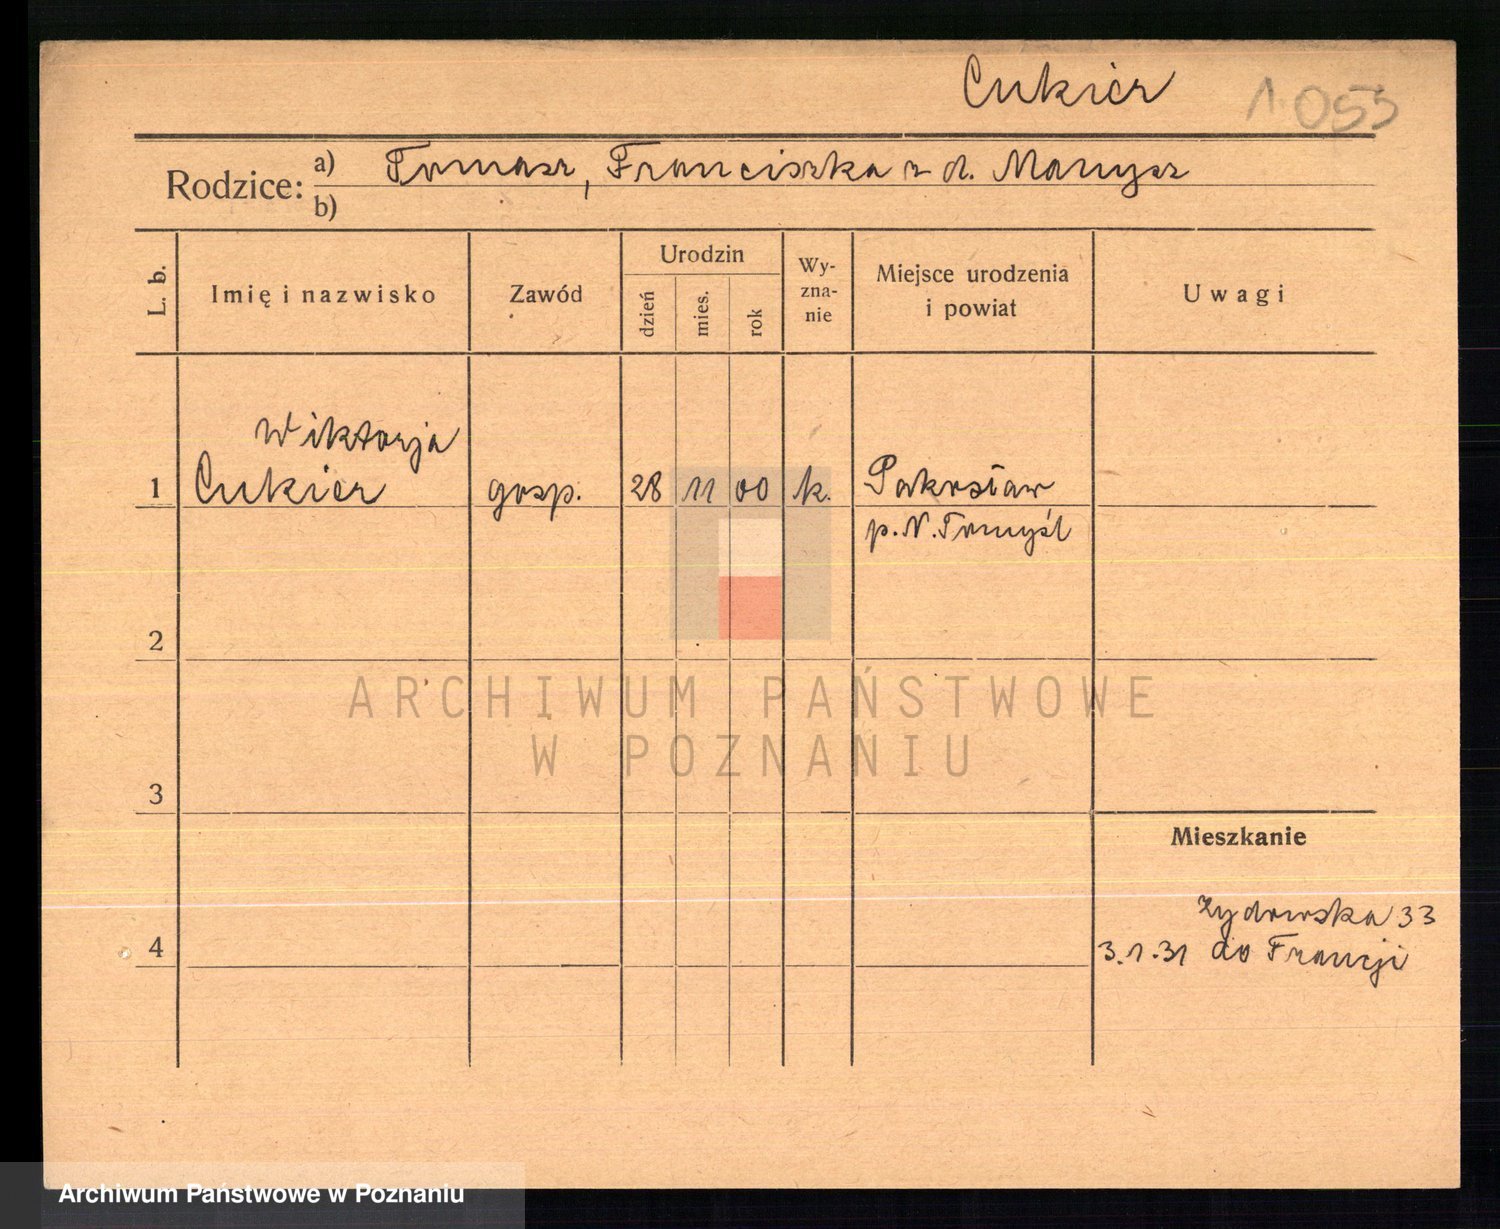 Cukier
1.053
Rodzice: a) Tomasz, Franciszka z d. Manysz
b)
L. b.
Imię i nazwisko
Zawód
Urodzin
dzień
mies.
rok
Wy-
zna-
nie
Miejsce urodzenia
i powiat
Uwagi
Wiktorja
1 Cukier gosp. 28 11 00 k. Pakosław
p. N. Tomyśl
2
ARCHIWUM PAŃSTWOWE
W POZNANIU
3
Mieszkanie
Żydowska 33
4 3.1.31 do Francji
Archiwum Państwowe w Poznaniu